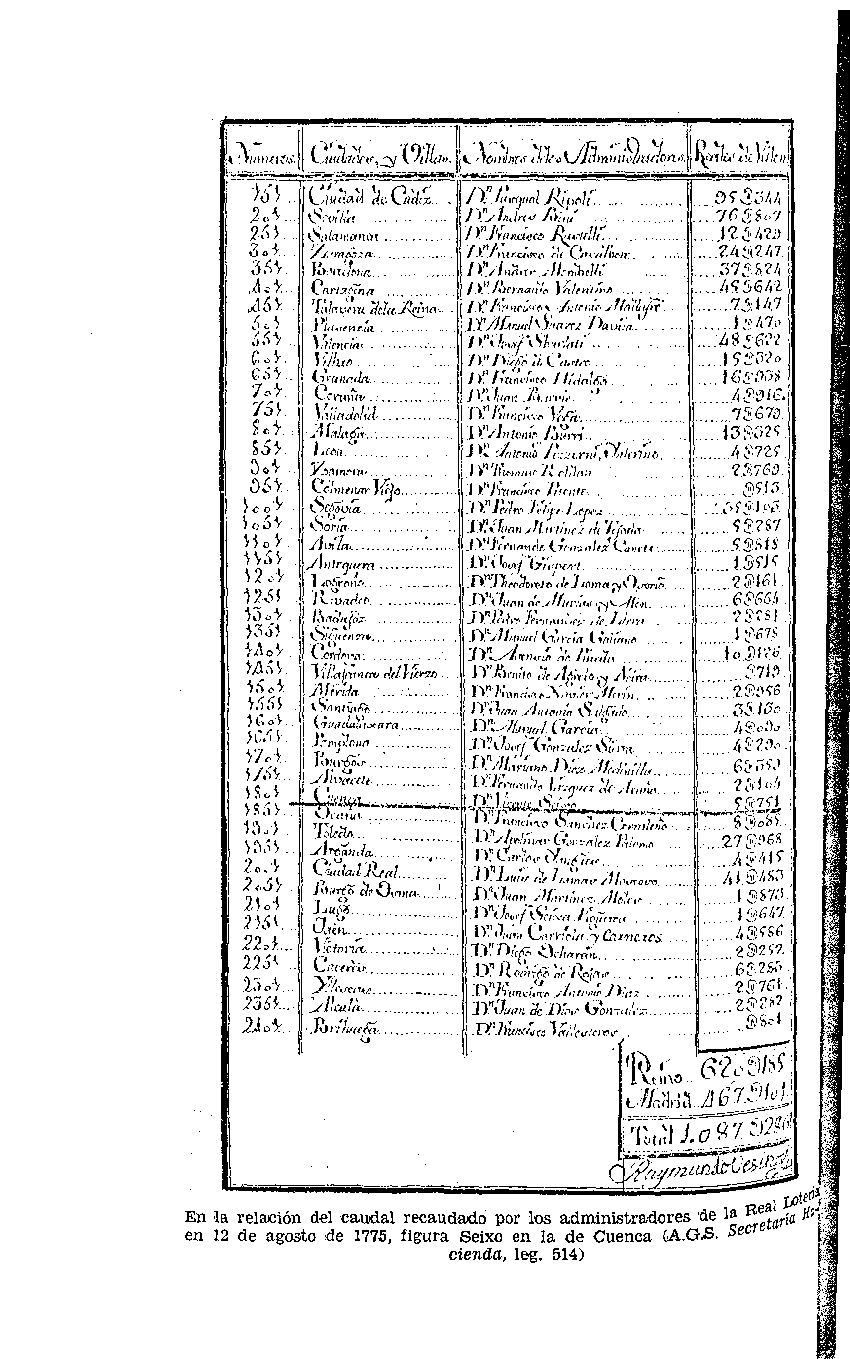 Números Ciudades, y Villas Nombres de los Administradores Reales de Vellon
151 Ciudad de Cadiz Dn Pasqual Ripoli 95@344
201 Sevilla Dn Andres 76@807
251 Salamanca Dn Francisco 12@429
301 Zaragoza Dn Francisco de 24@247
351 Barzelona Dn 37@824
401 Cartagena Dn Bernardo Valentino 48@642
451 Talavera de la Reina Dn Francisco Antonio 7@147
501 Plasencia Dn Manuel Suarez Davila 1@470
551 Valencia Dn Josef 48@622
601 Vilbao Dn Diego de Castro 15@320
651 Granada Dn Francisco Hidalgo 16@938
701 Coruña Dn Juan 4@916
751 Valladolid Dn Francisco Vega 7@679
801 Malaga Dn Antonio Burri 13@325
851 Leon Dn Antonio 4@725
901 Zamora Dn Roldan 2@769
951 Colmenar Viejo Dn Francisco Puente @513
1001 Segovia Dn Pedro Felipe Lopez
1051 Soria Dn Juan Martinez de Tejada 5@287
1101 Avila Dn Fernando Gonzalez 5@818
1151 Antequera Dn Josef Gispert 1@515
1201 Logroño Dn Theodoro de Lama y Osorio 2@161
1251 Rivadeo Dn Juan de Murias y Mon 6@664
1301 Badajoz Dn Pedro Fernandez de 2@281
1351 Siguenza Dn Manuel Garcia Galiano 1@678
1401 Cordova Dn de Pineda 10@126
1451 Villafranca del Vierzo Dn Benito de y Neira @719
1501 Mérida Dn Francisco Xavier 2@956
1551 Santiago Dn Juan Antonio Salgado 3@130
1601 Guadalaxara Dn Manuel Garcia 4@090
1651 Pamplona Dn Josef Gonzalez 4@290
1701 Burgos Dn Mariano Diez Medinilla 6@359
1751 Alvacete Dn Fernando Vazquez de 2@104
1801 Cuenca Dn Vicente Seixo 5@751
1851 Ocaña Dn Francisco Sanchez 8@085
1901 Toledo Dn Gonzalez Palomo 27@968
1951 Arganda Dn Carlos 4@415
2001 Ciudad Real Dn Luis de 41@483
2051 Burgo de Osma Dn Juan Martinez 1@873
2101 Lugo Dn Josef Seixa 1@647
2151 Jaén Dn Juan Carriola y Carneros 4@586
2201 Victoria Dn Diego 2@252
2251 Caceres Dn Rodrigo de Rojas 6@283
2301 Yllescas Dn Francisco Antonio Diaz 2@761
2351 Alcalá Dn Juan de Dios Gonzalez 2@282
2401 Brihuega Dn Francisco Vallesteros @801
Reino 620@185
Madrid 467@101
Total 1.087@286
Raymundo
En la relación del caudal recaudado por los administradores de la Real Lotería
en 12 de agosto de 1775, figura Seixo en la de Cuenca (A.G.S. Secretaría Ha-
cienda, leg. 514)